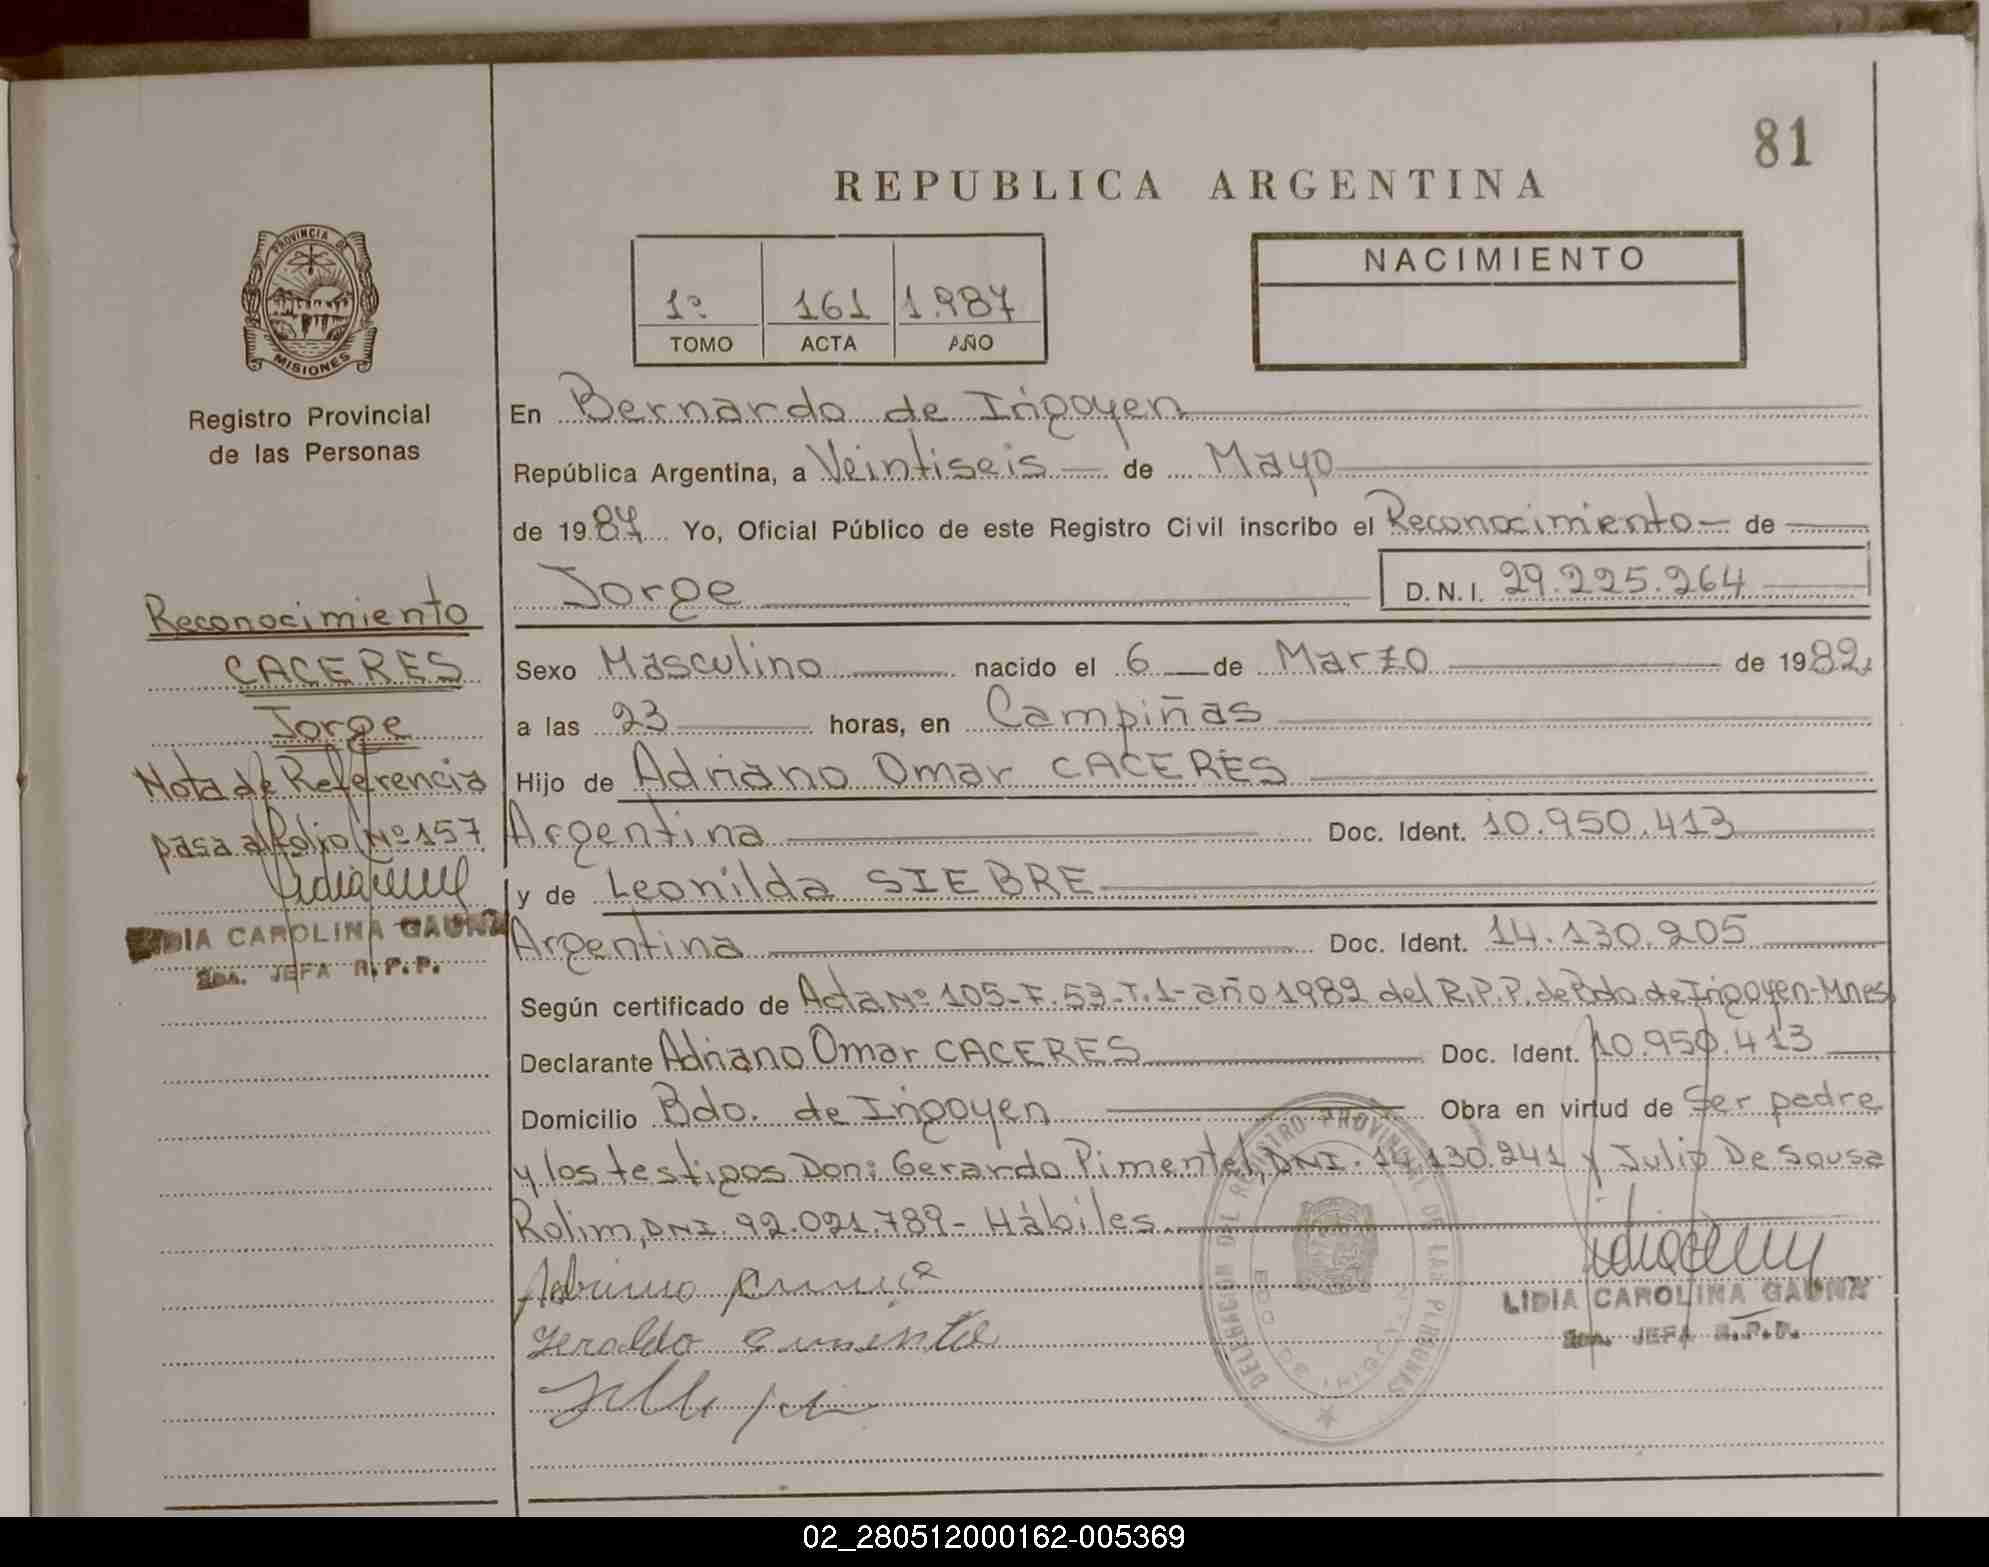 81
REPUBLICA ARGENTINA
PROVINCIA DE
MISIONES
Registro Provincial
de las Personas
1º 161 1.987
TOMO ACTA AÑO
NACIMIENTO
En Bernardo de Irigoyen
República Argentina, a Veintiseis de Mayo
de 1987 Yo, Oficial Público de este Registro Civil inscribo el Reconocimiento de
Jorge D.N.I. 29.225.264
Reconocimiento
CACERES
Jorge
Nota de Referencia
pasa al folio Nº 157
LIDIA CAROLINA GAUNA
JEFA R.P.P.
Sexo Masculino nacido el 6 de Marzo de 1982
a las 23 horas, en Campiñas
Hijo de Adriano Omar CACERES
Argentina Doc. Ident. 10.950.413
y de Leonilda SIEBRE
Argentina Doc. Ident. 14.130.205
Según certificado de Acta Nº 105-F.53-T.1-año 1982 del R.P.P. de Bdo. de Irigoyen-Mnes
Declarante Adriano Omar CACERES Doc. Ident. 10.950.413
Domicilio Bdo. de Irigoyen Obra en virtud de Ser padre
y los testigos Don: Gerardo Pimentel, DNI. 14.130.241 y Julio De Sousa
Rolim, DNI. 92.021.789- Hábiles
DELEGACION DEL REGISTRO PROVINCIAL DE LAS PERSONAS
LIDIA CAROLINA GAUNA
JEFA R.P.P.
02_280512000162-005369